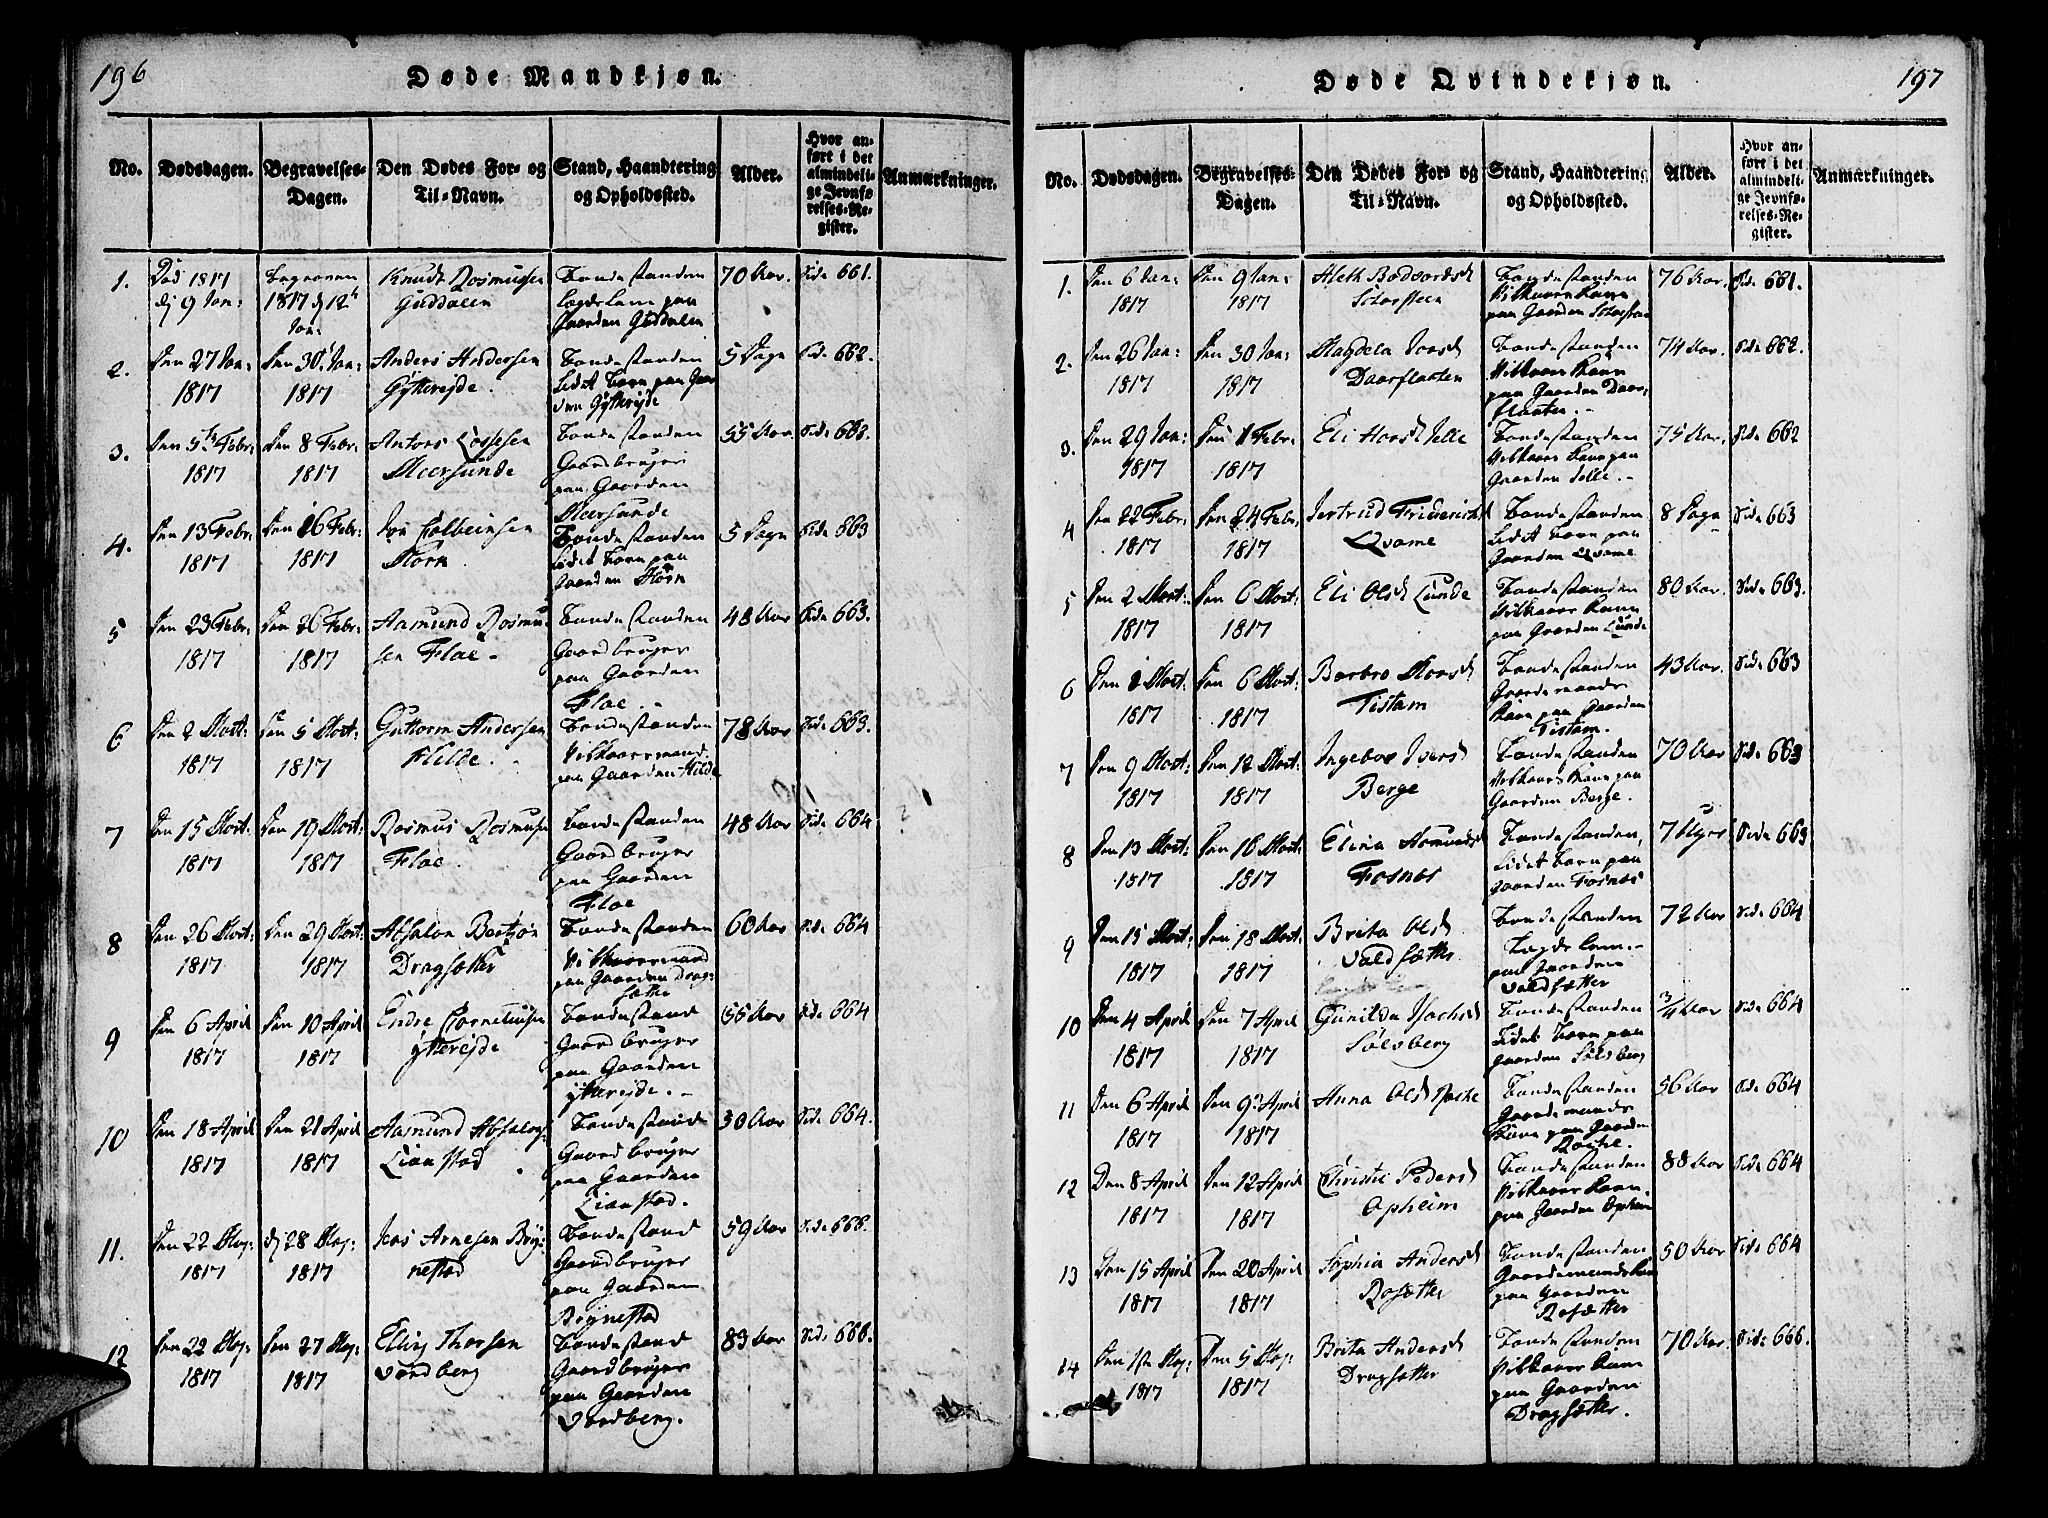 196
Døde Mandkjøn.
No.
Dødsdagen.
Begravelses-
Dagen.
Den Dødes For- og
Til-Navn.
Stand, Haandtering
og Opholdssted.
Alder.
Hvor an-
ført i det
almindeli-
ge Jevnfø-
relses-Re-
gister.
Anmærkninger.
1.
Død 1817
dj 9 Jan:
begraven
1817 dj 12
Jan:
Knudt Rasmussen
Guddalen
Bondestanden
Lægdslem paa
Gaarden Guddalen
70 Aar
Side 661.
2.
Den 27 Jan:
1817
Den 30 Jan:
1817
Anders Andersen
Gytterejde.
Bondestanden
Lidet Barn paa Gaar
den Gytterejde
5 Dage
Side 662.
3.
Den 5 Febr:
1817
Den 8 Febr:
1817
Bondestanden
Gaardbruger
paa Gaarden
55 Aar
Side 663.
4.
Den 13 Febr:
1817
Den 16 Febr:
1817
Bondestanden
Lidet Barn paa
Gaarden
5 Dage
Side 663
5
Den 23 Febr:
1817
Den 26 Febr:
1817
Aamund Rasmus
sen Flae.
Bondestanden
Gaardbruger
paa Gaarden
Flae.
48 Aar
Side 663.
6
Den 2 Mart:
1817
Den 5 Mart:
1817
Guttorm Andersen
Hilde.
Bondestanden
Vilkaarsmand
paa Gaarden Hilde
78 Aar
Side 663.
7
Den 15 Mart:
1817
Den 19 Mart:
1817
Rasmus Rasmuse
Flae.
Bondestanden
Gaardbruger
paa Gaarden
Flae
48 Aar
Side 664
8
Den 26 Mart:
1817
Den 29 Mart:
1817
Absalon Bertsøn
Dragsætter
Bondestanden
Vilkaarsmand
paa Gaarden Drag-
sætter
60 Aar
Side 664
9
Den 6 April
1817
Den 10 April
1817
Endre Corneliusse
ytterejde
Bondestand
Gaardbruger
paa Gaarden
ytterejde.
55 Aar
Side 664
10
Den 18 April
1817
Den 21 April
1817
Aamund Absalons
Lianstad
Bondestand
Gaardbruger
paa Gaarden
Lianstad.
30 Aar
Side 664.
11.
Den 22 Maj:
1817
dj 28 Maj:
1817
Jens Arnesen Brÿ-
nestad
Bondestand
Gaardbruger
paa Gaarden
Brÿnestad
59 Aar
Side 666.
12
Den 22 Maj:
1817
Den 27 Maj:
1817
Elling Thorsen
Vardberg
Bondestand
Gaardbruger
paa Gaarden
Vardberg.
83 Aar
Side 666.
197
Døde Qvindekjøn.
No.
Dødsdagen.
Begravelses-
Dagen.
Den Dødes For- og
Til-Navn.
Stand, Haandtering
og Opholdssted.
Alder.
Hvor an-
ført i det
almindeli-
ge Jevnfø-
relses-Re-
gister.
Anmærkninger.
1.
Den 6 Jan:
1817
Den 9 Jan:
1817
Storsteen
Bondestanden
Vilkaars Kone
paa Gaarden Storsteen
76 Aar.
Side 661.
2.
Den 26 Jan:
1817
Den 30 Jan:
1817
Magdela
Daarflaaten
Bondestanden
Vilkaars Kone
paa Gaarden Daar-
flaaten.
74 Aar.
Side 662.
3.
Den 29 Jan:
1817
Den 1 Febr:
1817
Eli Hansd Selle
Bondestanden
Vilkaars Kone paa
Gaarden Selle.
75 Aar.
Side 662
4
Den 22 Febr:
1817
Den 24 Febr:
1817
Jertrud Friderichsd
Qvame
Bondestanden
Lidet Barn paa
Gaarden Qvame
8 Dage
Side 663
5
Den 2 Mart:
1817
Den 6 Mart:
1817
Eli Olsd Lunde
Bondestanden
Vilkaars Kone
paa Gaarden Lunde
80 Aar.
Side 663.
6
Den 1 Mart:
1817
Den 6 Mart:
1817
Barbro
Tistam
Bondestanden
Gaardemands
Kone paa Gaarden
Tistam.
43 Aar.
Side 663
7
Den 9 Mart:
1817
Den 12 Mart:
1817
Ingebor Iversd
Berge
Bondestanden
Vilkaars Kone paa
Gaarden Berge.
70 Aar
Side 663
8
Den 13 Mart:
1817
Den 16 Mart:
1817
Elina
Fosnæs
Bondestanden,
Lidet Barn paa
Gaarden Fosnæs
7 Uger
Side 663
9
Den 15 Mart:
1817
Den 18 Mart:
1817
Brita Olsd
Valdsætter
Bondestanden
Lægdslem
paa Gaarden
Valdsætter
72 Aar
Side 664
10
Den 4 April
1817
Den 7 April
1817
Gunilda
Sølsberg
Bondestanden
Lidet Barn paa
Gaarden Sølsberg
3/4 Aar
Side 664
11
Den 6 April
1817
Den 9 April
1817
Anna Olsd
Bondestanden
Gaardemands
Kone paa Gaarden
56 Aar
Side 664
12
Den 8 April
1817
Den 12 April
1817
Christi Pedersd
Opheim
Bondestanden
Vilkaars Kone
paa Gaarden Opheim
88 Aar
Side 664
13
Den 15 April
1817
Den 20 April
1817
Sophia Andersd
Rosætter
Bondestanden
Gaardemands Kone
paa Gaarden
Rosætter
50 Aar
Side 664
14
Den 1ste Maj:
1817
Den 5 Maj:
1817
Brita Andersd
Dragsætter
Bondestanden
Vilkaars Kone
paa Gaarden
Dragsætter.
70 Aar.
Side 666.